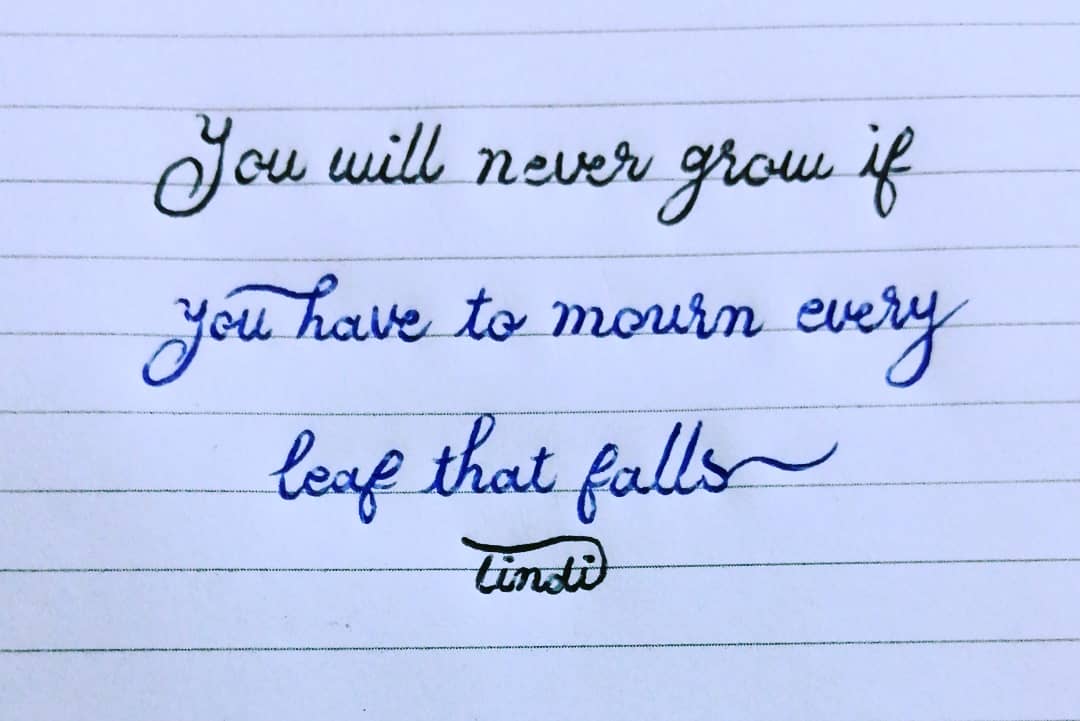 You will never grow if
you have to mourn every
leaf that falls
lindi